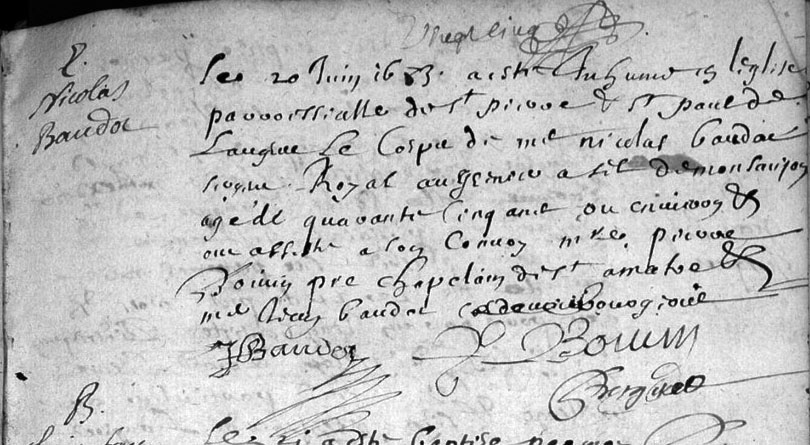 S.
Nicolas
Baudot
Le 20 Juin 1683. a esté Inhumé en l'eglise
parroissialle de st pierre & st paul de
Le Corps de me nicolas baudot
Royal au grenier a sel de monsaujon
agé de quarante cinq ans ou environ &
ont assisté a son Convoy mre pierre
Boivin pre chapelain de st amatre &
me Jean baudot bourgeois
JBaudot
P Boivin
B.
Le 21 a esté baptise